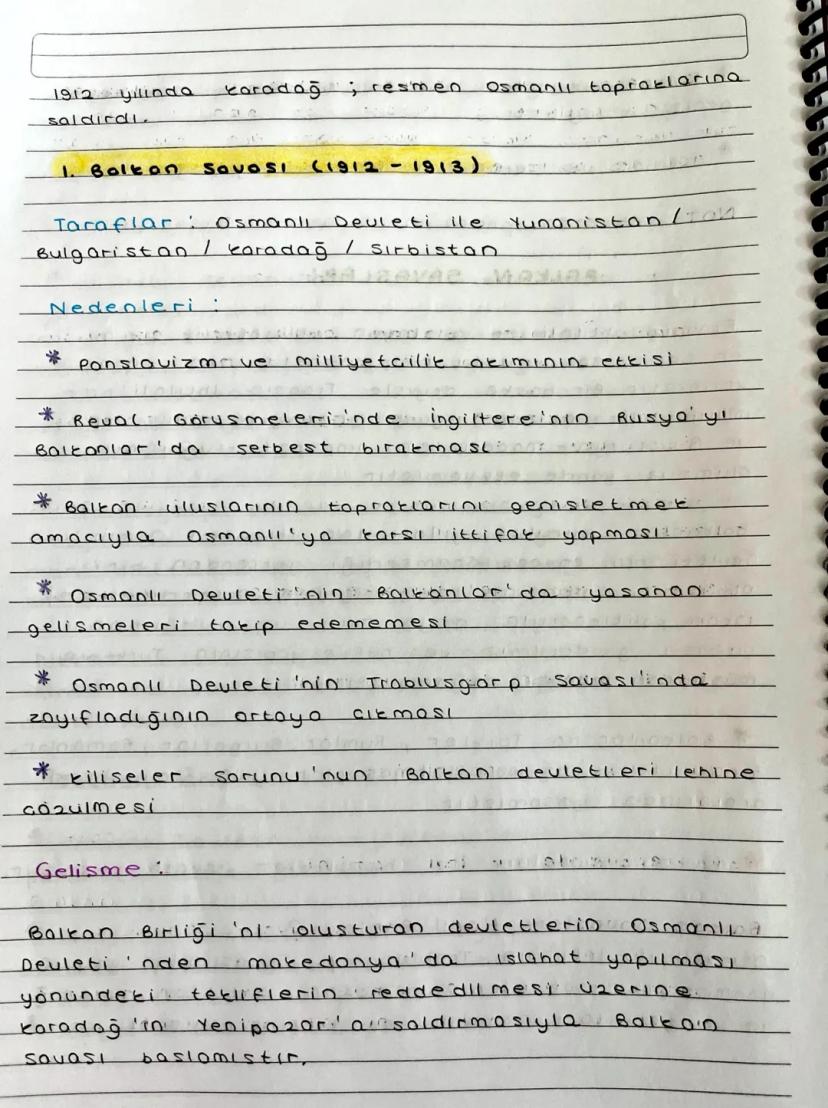 1912 yılında Karadağ ; resmen Osmanlı topraklarına
saldırdı.
1. Balkan Savası (1912 - 1913)
Taraflar : Osmanlı Devleti ile Yunanistan /
Bulgaristan / Karadağ / Sırbistan
Nedenleri :
* Panslavizm ve milliyetcilik akımının etkisi
* Reval Görüsmeleri'nde İngiltere'nin Rusya'yı
Balkanlar'da serbest bırakması
* Balkan uluslarının topraklarını genisletmek
amacıyla Osmanlı'ya karsı ittifak yapması
* Osmanlı Devleti'nin Balkanlar'da yasanan
gelismeleri takip edememesi
* Osmanlı Devleti'nin Trablusgarp Savası'nda
zayıfladığının ortaya cıkması
* Kiliseler Sorunu'nun Balkan devletleri lehine
cözülmesi
Gelisme :
Balkan Birliği'ni olusturan devletlerin Osmanlı
Devleti'nden makedonya'da ıslahat yapılması
yönündeki tekliflerin reddedilmesi üzerine
Karadağ'ın Yenipazar'a saldırmasıyla Balkan
savası baslamıstır.